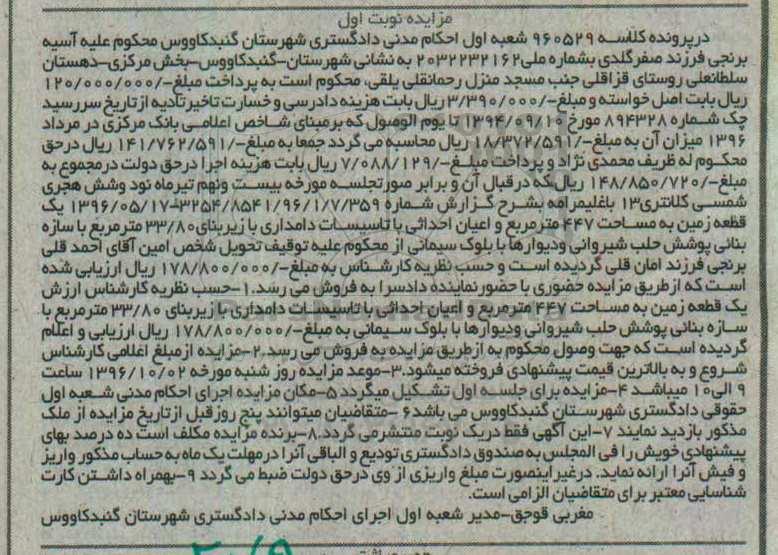 مزایده نوبت اول
درپرونده کلاسه ۹۶۰۵۲۹ شعبه اول احکام مدنی دادگستری شهرستان گنبدکاووس محکوم علیه آسیه
برنجی فرزند صفرگلدی بشماره ملی۲۰۳۲۲۳۲۱۶۲ به نشانی شهرستان-گنبدکاووس-بخش مرکزی-دهستان
سلطانعلی روستای قزاقلی جنب مسجد منزل رحمانقلی یلقی، محکوم است به پرداخت مبلغ-/۱۲۰/۰۰۰/۰۰۰
ریال بابت اصل خواسته و مبلغ-/۳/۳۹۰/۰۰۰ ریال بابت هزینه دادرسی و خسارت تاخیر تادیه از تاریخ سررسید
چک شماره ۸۹۴۳۲۸ مورخ ۱۳۹۴/۰۹/۱۰ تا یوم الوصول که برمبنای شاخص اعلامی بانک مرکزی در مرداد
۱۳۹۶ میزان آن به مبلغ-/۱۸/۳۷۲/۵۹۱ ریال محاسبه می گردد جمعا به مبلغ-/۱۴۱/۷۶۲/۵۹۱ ریال درحق
محکوم له ظریف محمدی نژاد و پرداخت مبلغ-/۷/۰۸۸/۱۲۹ ریال بابت هزینه اجرا درحق دولت درمجموع به
مبلغ-/۱۴۸/۸۵۰/۷۲۰ ریال که درقبال آن و برابر صورتجلسه مورخه بیست ونهم تیرماه نود وشش هجری
شمسی کلانتری۱۳ باغلیمرامه بشرح گزارش شماره ۳۲۵۴/۸۵۴۱/۹۶/۱/۷/۳۵۹-۱۳۹۶/۰۵/۱۷ یک
قطعه زمین به مساحت ۴۴۷ مترمربع و اعیان احداثی با تاسیسات دامداری با زیربنای۳۳/۸۰ مترمربع با سازه
بنائی پوشش حلب شیروانی ودیوارها با بلوک سیمانی از محکوم علیه توقیف تحویل شخص امین آقای احمد قلی
برنجی فرزند امان قلی گردیده است و حسب نظریه کارشناس به مبلغ-/۱۷۸/۸۰۰/۰۰۰ ریال ارزیابی شده
است که ازطریق مزایده حضوری با حضور نماینده دادسرا به فروش می رسد.۱-حسب نظریه کارشناس ارزش
یک قطعه زمین به مساحت ۴۴۷ مترمربع و اعیان احداثی با تاسیسات دامداری با زیربنای ۳۳/۸۰ مترمربع با
سازه بنائی پوشش حلب شیروانی ودیوارها با بلوک سیمانی به مبلغ-/۱۷۸/۸۰۰/۰۰۰ ریال ارزیابی و اعلام
گردیده است که جهت وصول محکوم به ازطریق مزایده به فروش می رسد.۲-مزایده ازمبلغ اعلامی کارشناس
شروع و به بالاترین قیمت پیشنهادی فروخته میشود.۳-موعد مزایده روز شنبه مورخه ۱۳۹۶/۱۰/۰۲ ساعت
۹ الی۱۰ میباشد ۴-مزایده برای جلسه اول تشکیل میگردد ۵-مکان مزایده اجرای احکام مدنی شعبه اول
حقوقی دادگستری شهرستان گنبدکاووس می باشد۶ -متقاضیان میتوانند پنج روز قبل ازتاریخ مزایده از ملک
مذکور بازدید نمایند ۷-این آگهی فقط دریک نوبت منتشرمی گردد.۸-برنده مزایده مکلف است ده درصد بهای
پیشنهادی خویش را فی المجلس به صندوق دادگستری تودیع و الباقی آنرا درمهلت یک ماه به حساب مذکور واریز
و فیش آنرا ارائه نماید. درغیر اینصورت مبلغ واریزی از وی درحق دولت ضبط می گردد ۹-بهمراه داشتن کارت
شناسایی معتبر برای متقاضیان الزامی است.
مغربی قوجق-مدیر شعبه اول اجرای احکام مدنی دادگستری شهرستان گنبدکاووس